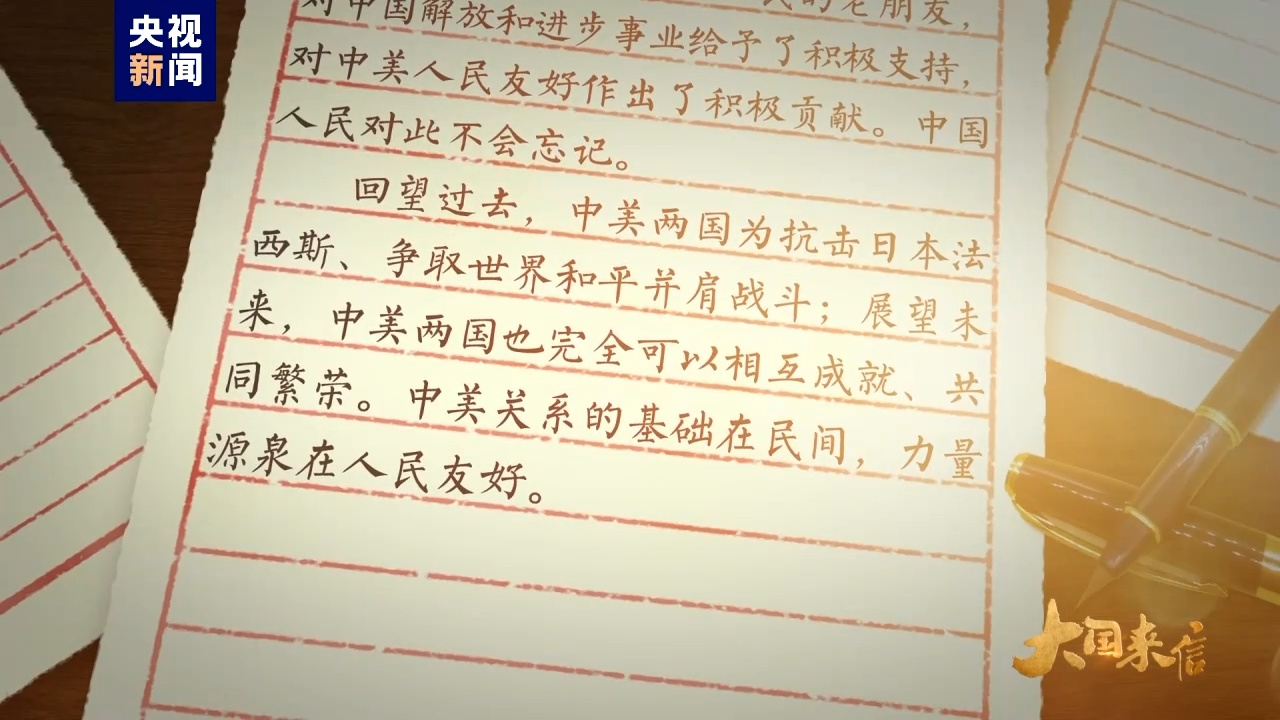 央视
新闻
民的老朋友，
对中国解放和进步事业给予了积极支持，
对中美人民友好作出了积极贡献。中国
人民对此不会忘记。
回望过去，中美两国为抗击日本法
西斯、争取世界和平并肩战斗；展望未
来，中美两国也完全可以相互成就、共
同繁荣。中美关系的基础在民间，力量
源泉在人民友好。
大国来信